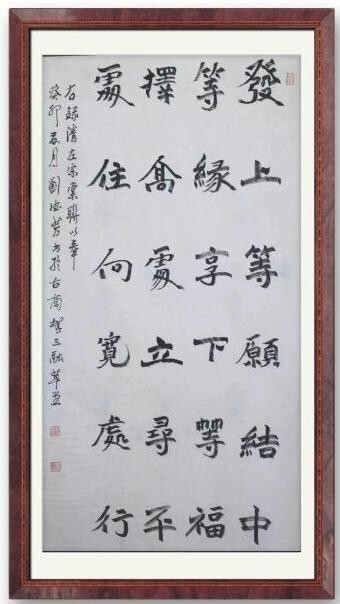 發上等願結中
等緣享下等福
擇髙處立尋平
處住向寬處行
右録清左宗棠聯以奉
癸卯 月劉 於古商 三融草堂